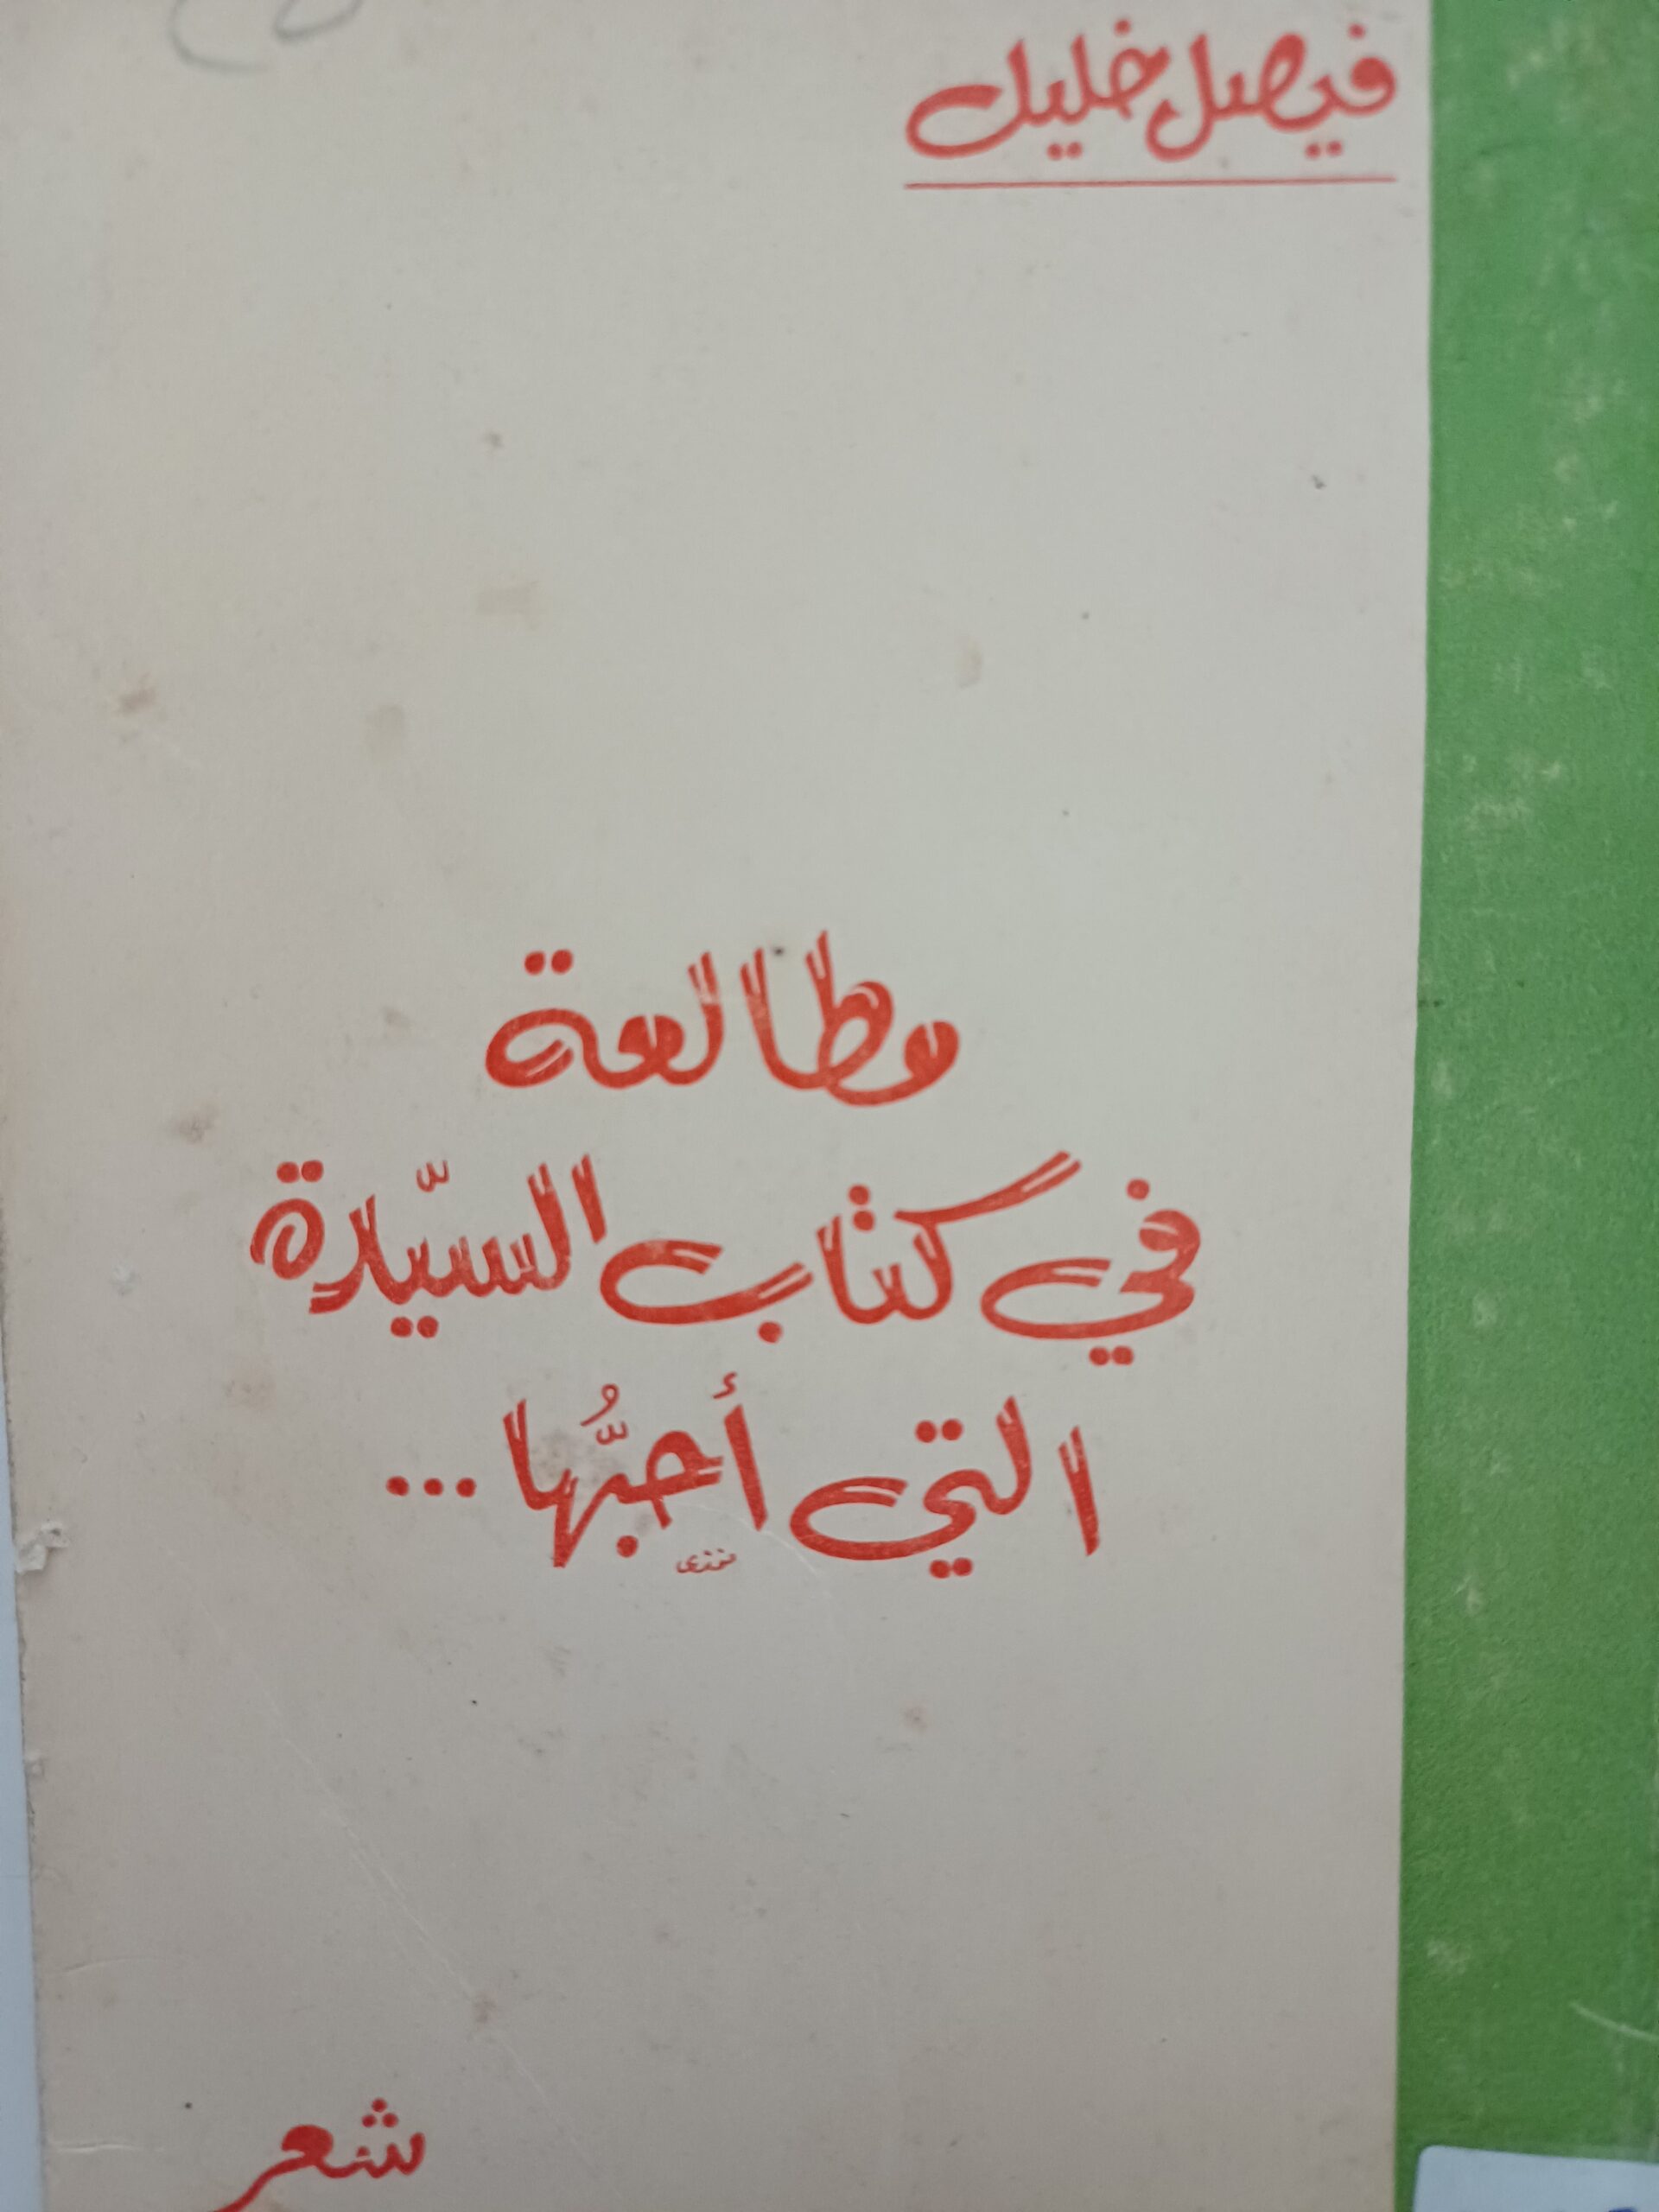 فيصل خليل
مطالعة
في كتاب السيّدة
التي أحبُّها...
شعر